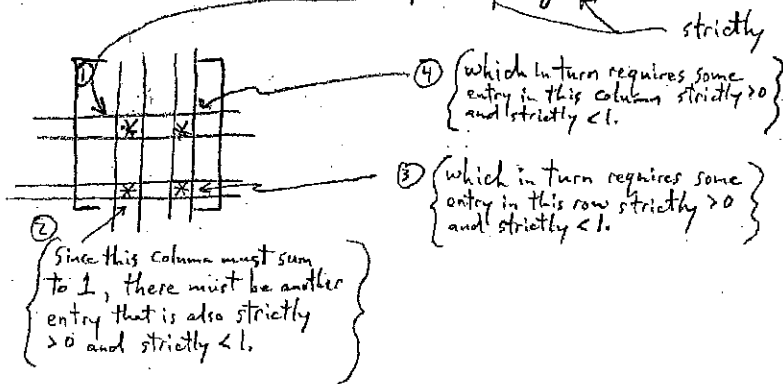 strictly
①
* *
* *
④ {which in turn requires some
entry in this column strictly >0
and strictly <1.}
③ {which in turn requires some
entry in this row strictly >0
and strictly <1.}
②
{Since this column must sum
to 1, there must be another
entry that is also strictly
>0 and strictly <1.}